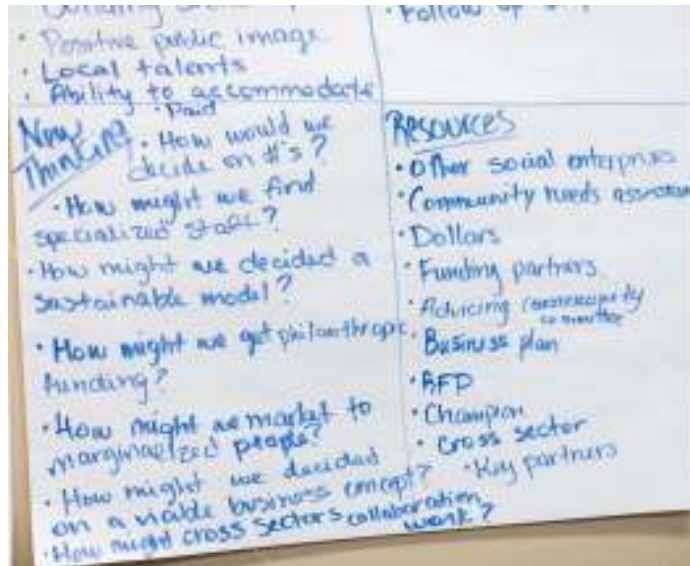 • Positive public image
• Local talents
• Ability to accommodate
• Follow up
New
Thinking
• Paid
• How would we
decide on #'s?
• How might we find
specialized staff?
• How might we decided a
sustainable model?
• How might we get philanthropic
funding?
• How might we market to
marginalized people?
• How might we decided
on a viable business concept?
• How might cross sectors collaboration
work?
RESOURCES
• Other social enterprises
• Community needs
• Dollars
• Funding partners
• Advicing community
committee
• Business plan
• RFP
• Champion
• Cross sector
• Key partners